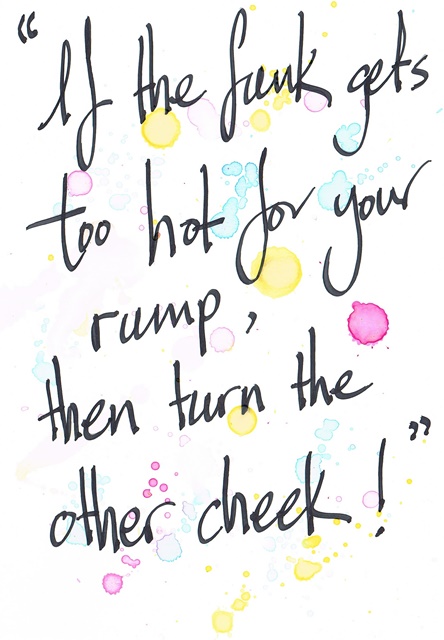 “If the funk gets
too hot for your
rump,
then turn the
other cheek!”